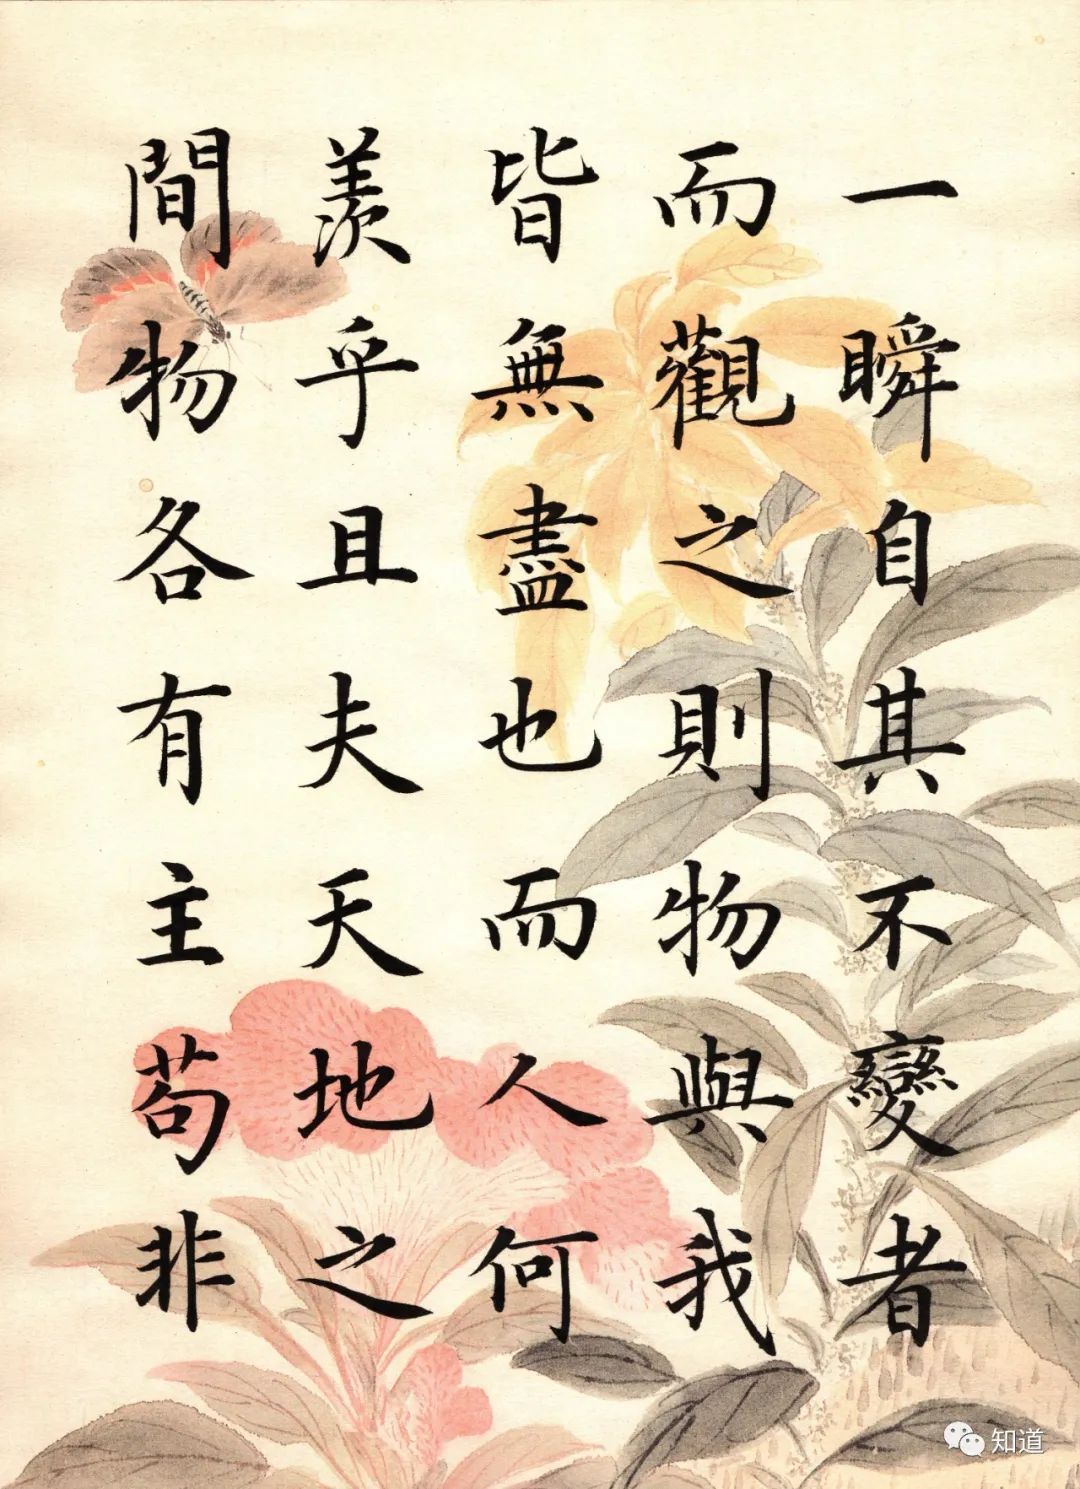 一瞬自其不變者
而觀之則物與我
皆無盡也而人何
羨乎且夫天地之
間物各有主苟非
知道